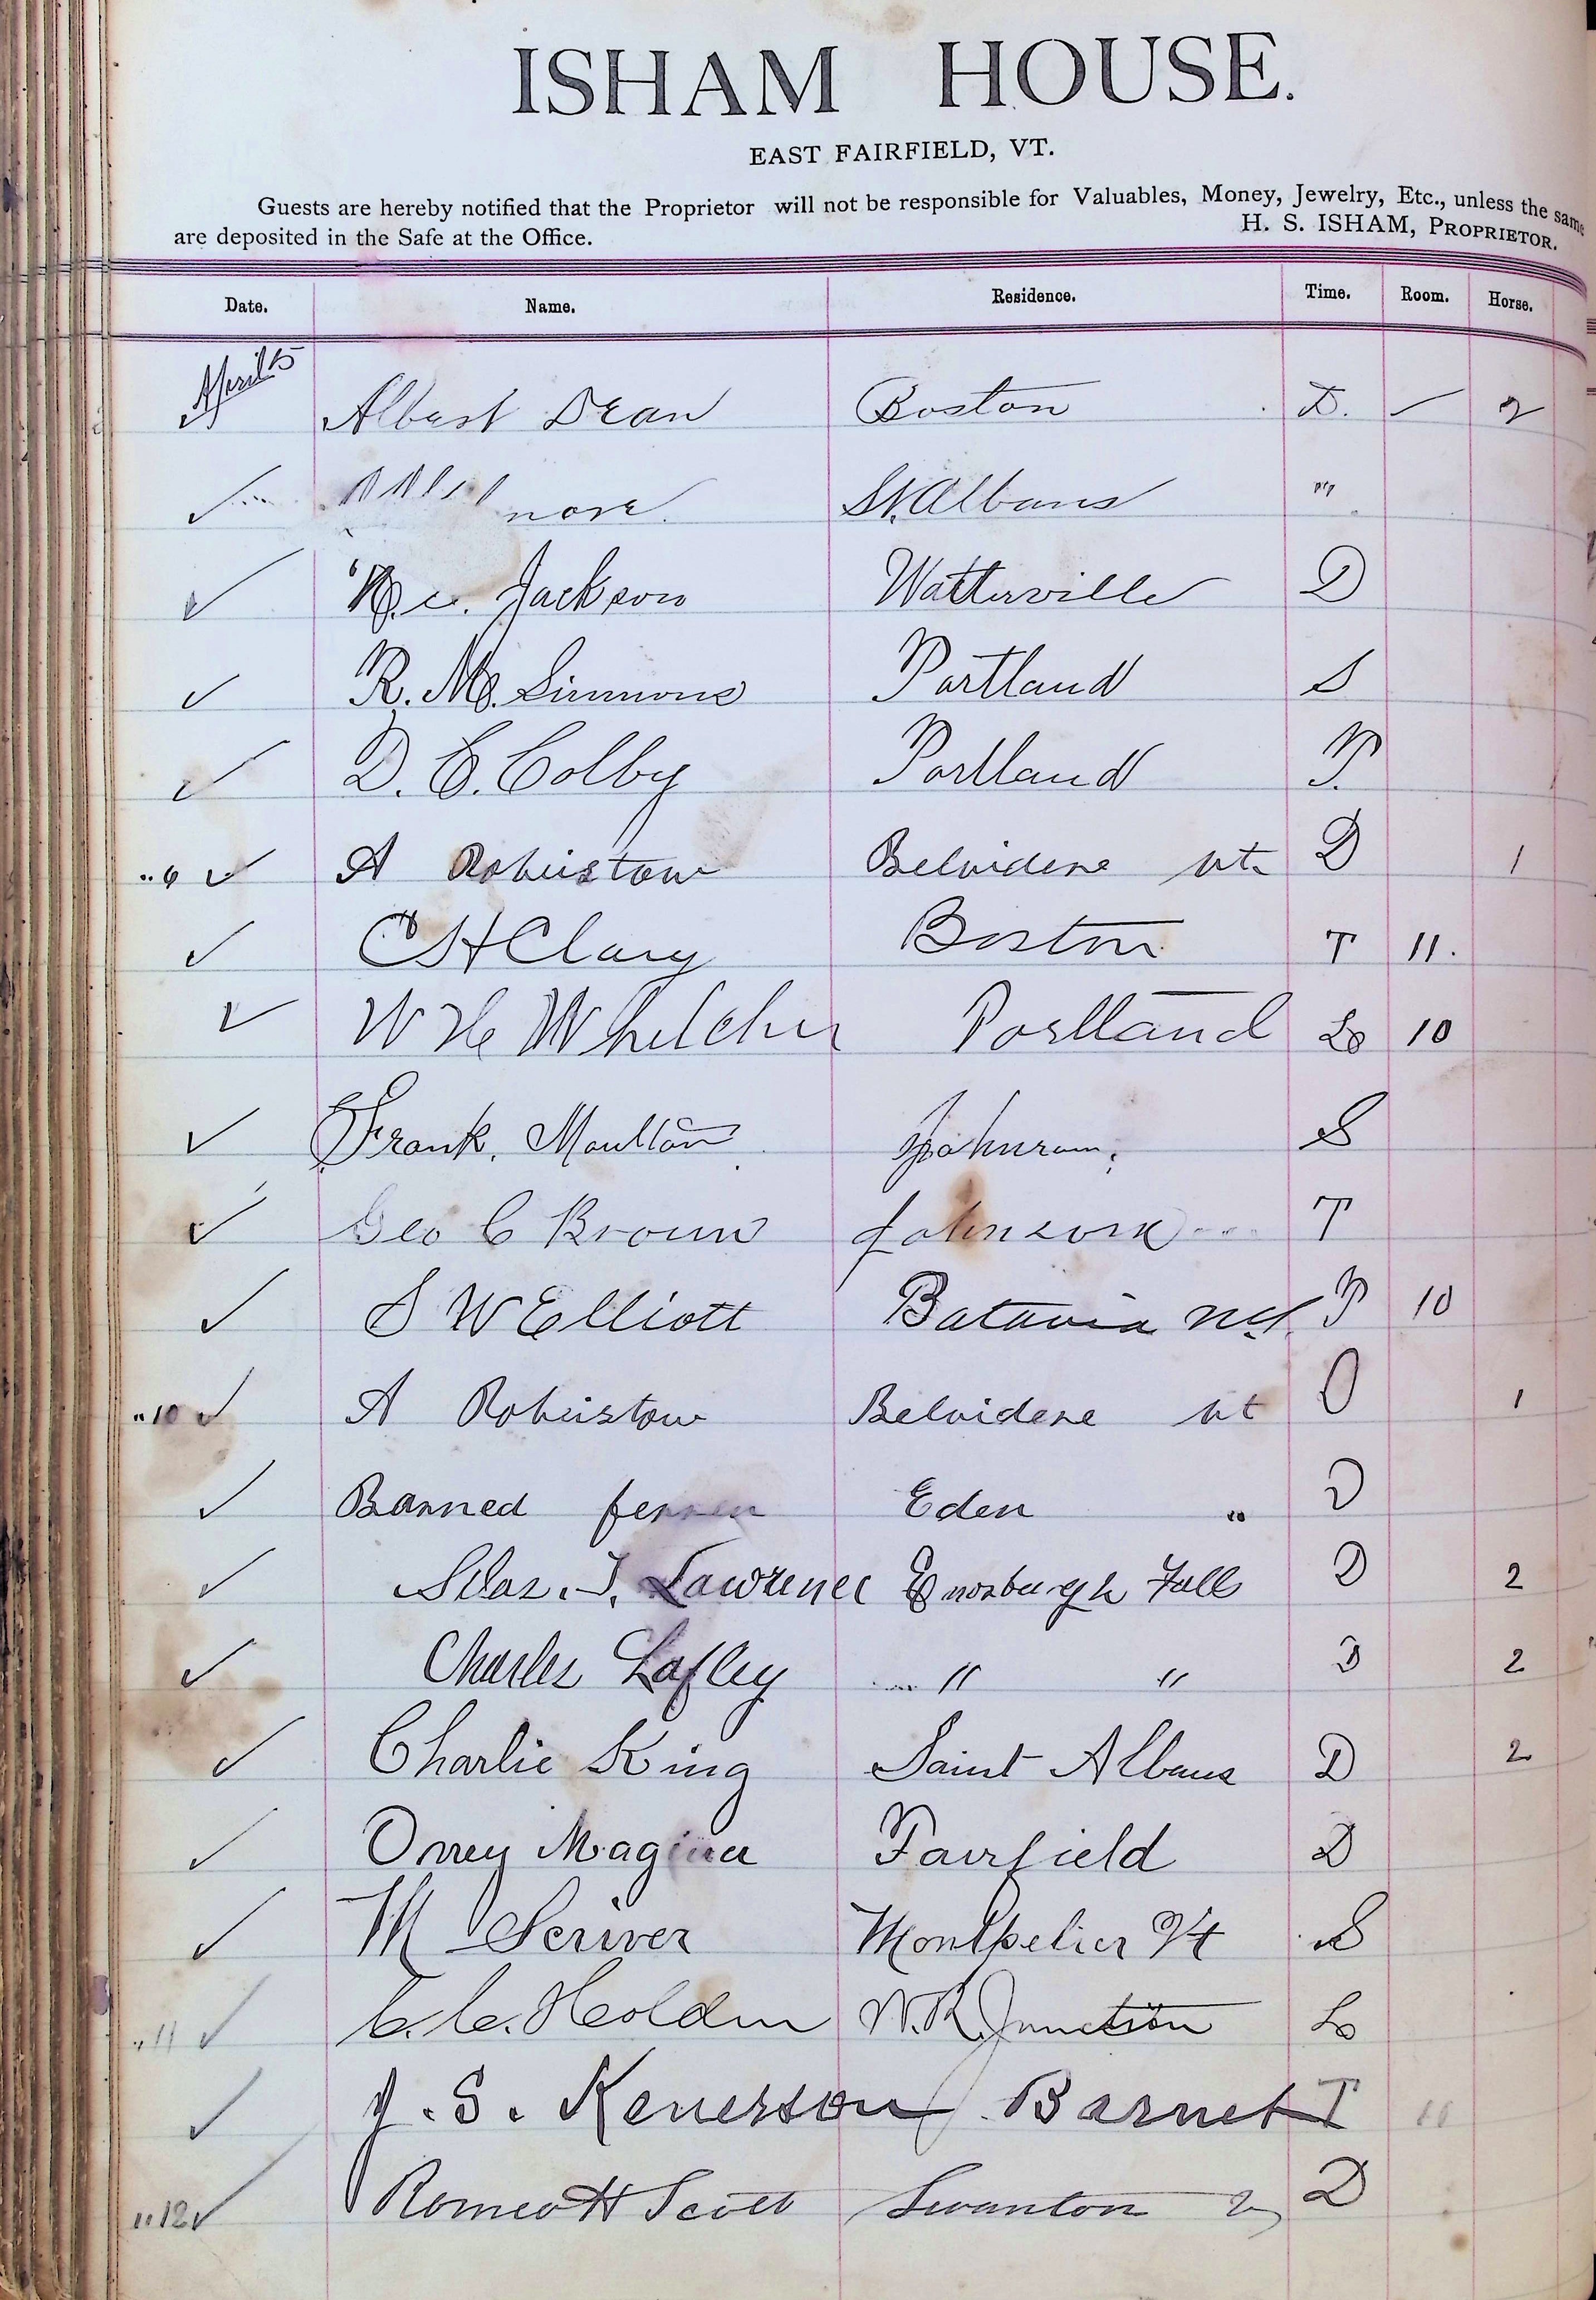 ISHAM HOUSE.
EAST FAIRFIELD, VT.
Guests are hereby notified that the Proprietor will not be responsible for Valuables, Money, Jewelry, Etc., unless the same
are deposited in the Safe at the Office. H. S. ISHAM, PROPRIETOR.
Date. Name. Residence. Time. Room. Horse.
April 5 Albert Dean Boston D. 2
St. Albans "
Jackson Watterville D
R. M. Simmons Portland S
D. C. Colby Portland P.
"6 A Robistow Belvidere vt. D 1
C H Clary Boston T 11.
W H Whilcher Portland Lo 10
Frank. Moulton S
Geo C Brown Johnson T
S W Elliott Batavia N.Y. P 10
"10 A Robistow Belvidere vt O 1
Barned Eden " D
Silas. J. Lawrence Enosburgh Falls D 2
Charles Lafley " " D 2
Charlie King Saint Albans D 2
Orrey Fairfield D
M Scriver Montpelier Vt S
"11 C. C. Holden W. R. Junction Lo
J. S. Kenerson Barnet T 11
"12 Romeo H Scott Swanton D